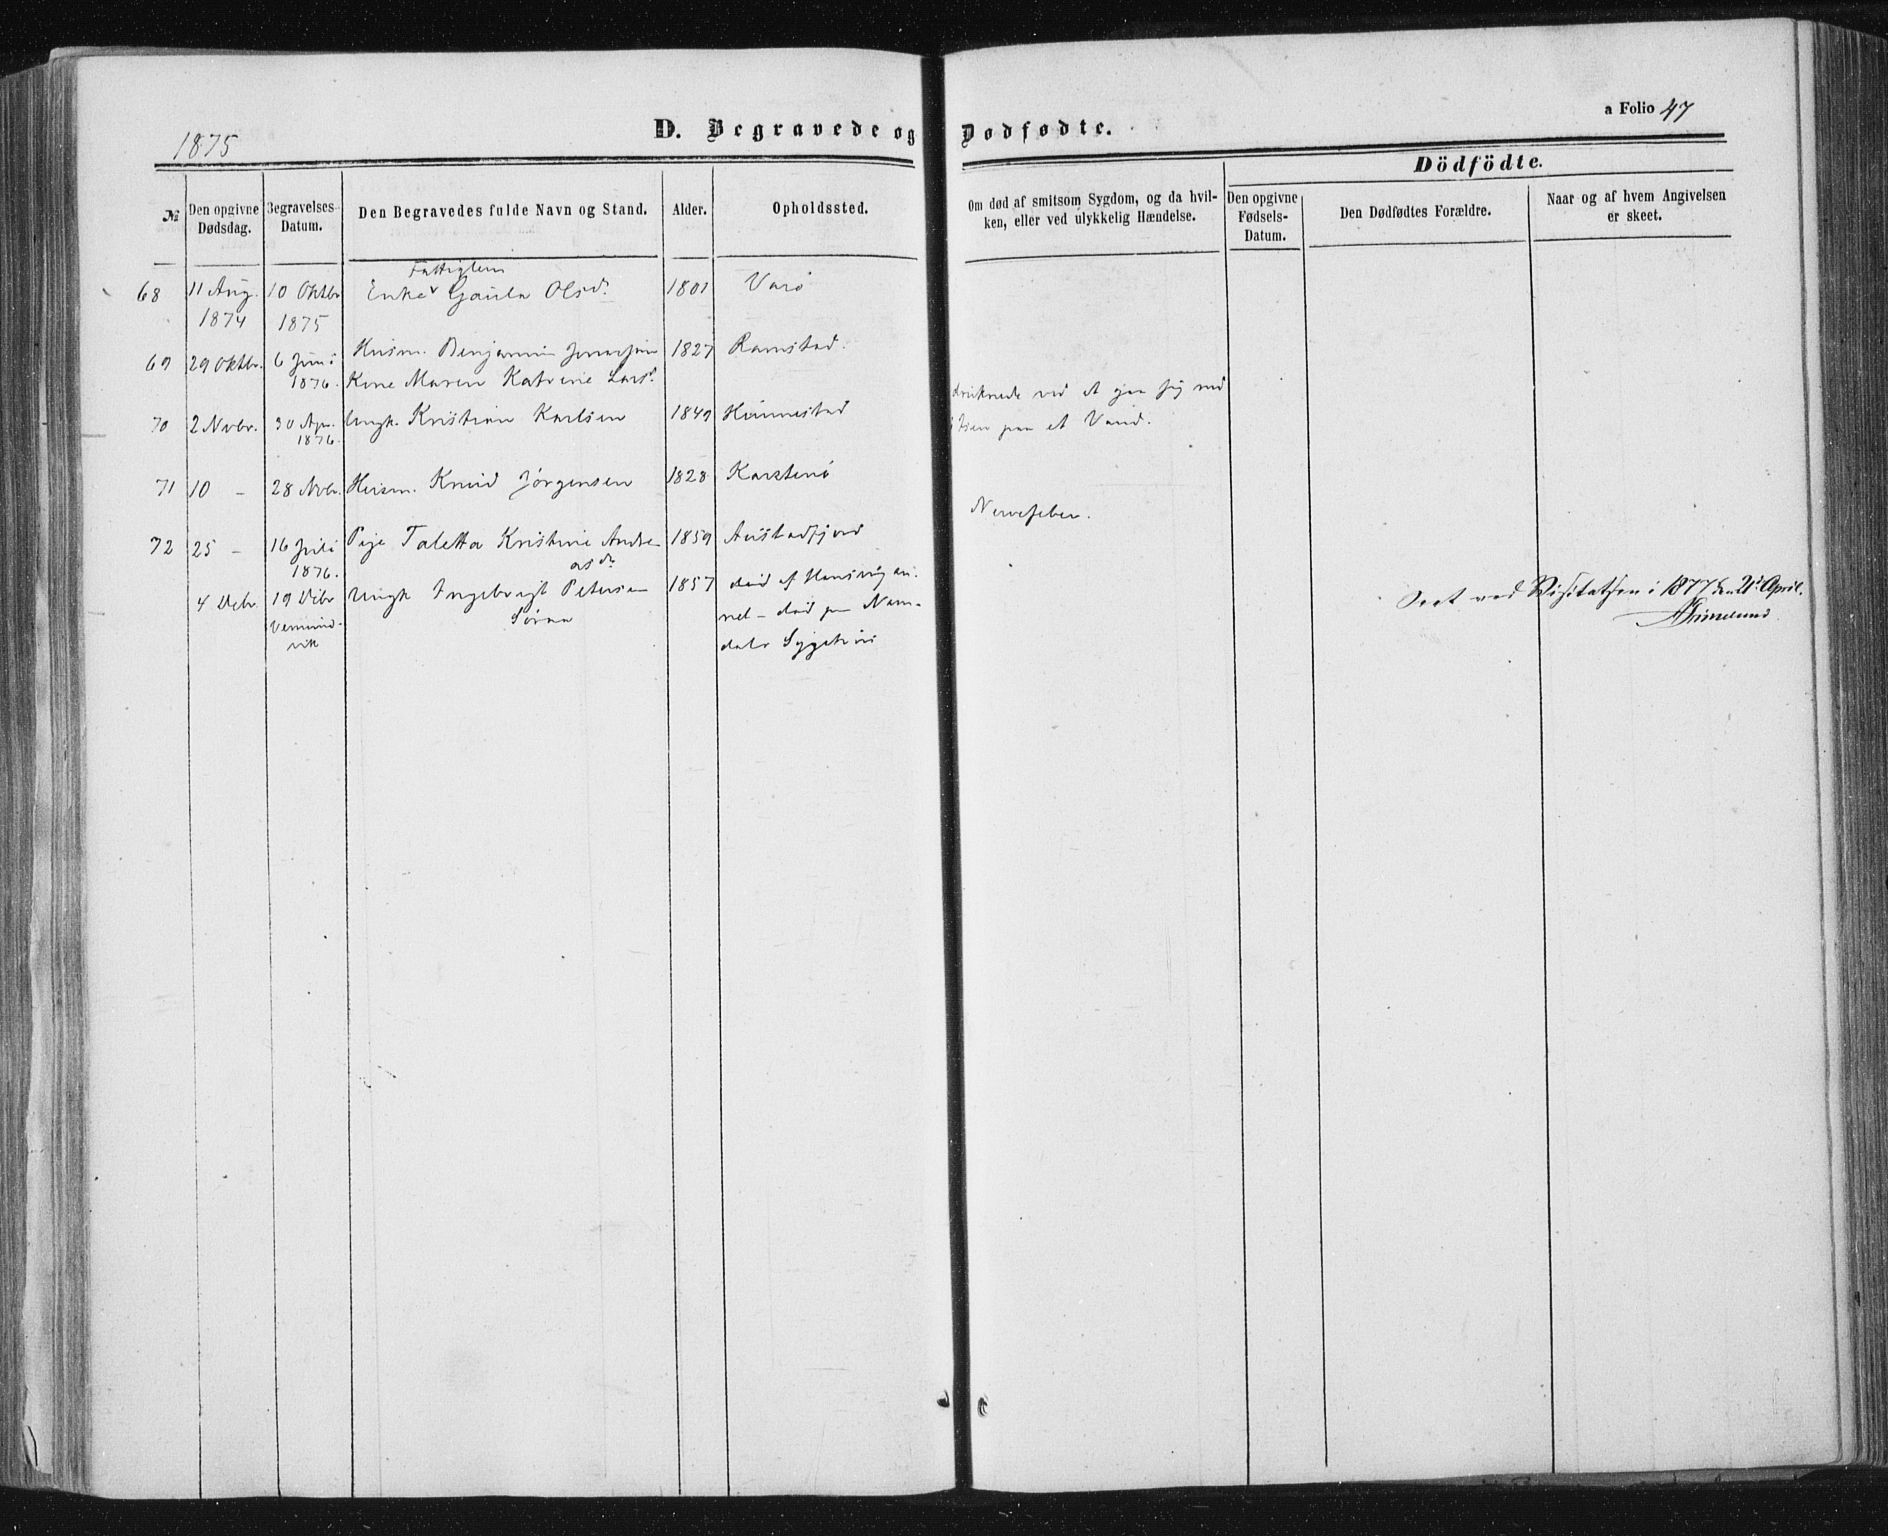 1875
D. Begravede og Dødfødte.
a Folio 47
Dödfödte.
№
Den opgivne Dødsdag.
Begravelses-Datum.
Den Begravedes fulde Navn og Stand.
Alder.
Opholdssted.
Om død af smitsom Sygdom, og da hvil-
ken, eller ved ulykkelig Hændelse.
Den opgivne Fødsels-Datum.
Den Dødfødtes Forældre.
Naar og af hvem Angivelsen
er skeet.
Fattiglem
68 11 Aug. 10 Oktbr Enke Olsd. 1801 Varø
1874 1875
69 29 Oktbr. 6 Juni Husm. Benjamin 1827 Ramstad.
1876. Kone Maren Katrine Larsd.
druknede ved at gaa sig ned
70 2 Novbr. 30 Apr. Ungk. Kristian Karlsen 1849 Humnestad
1876.
Isen paa et Vand.
71 10 - 28 Nvbr. Husm. Knud Jørgensen 1828 Karstenø
Nervefeber.
72 25 - 16 Juli Pige Taletta Kristine Andre- 1859 Austadfjord
1876. asdr
4 Debr 19 Debr Ungk Ingebrigt Petersen 1857 død af
Vemund- Søraa død paa Nam-
vik dals Sygehus
Seet ved Visitatsen i 1877 den 21d April.